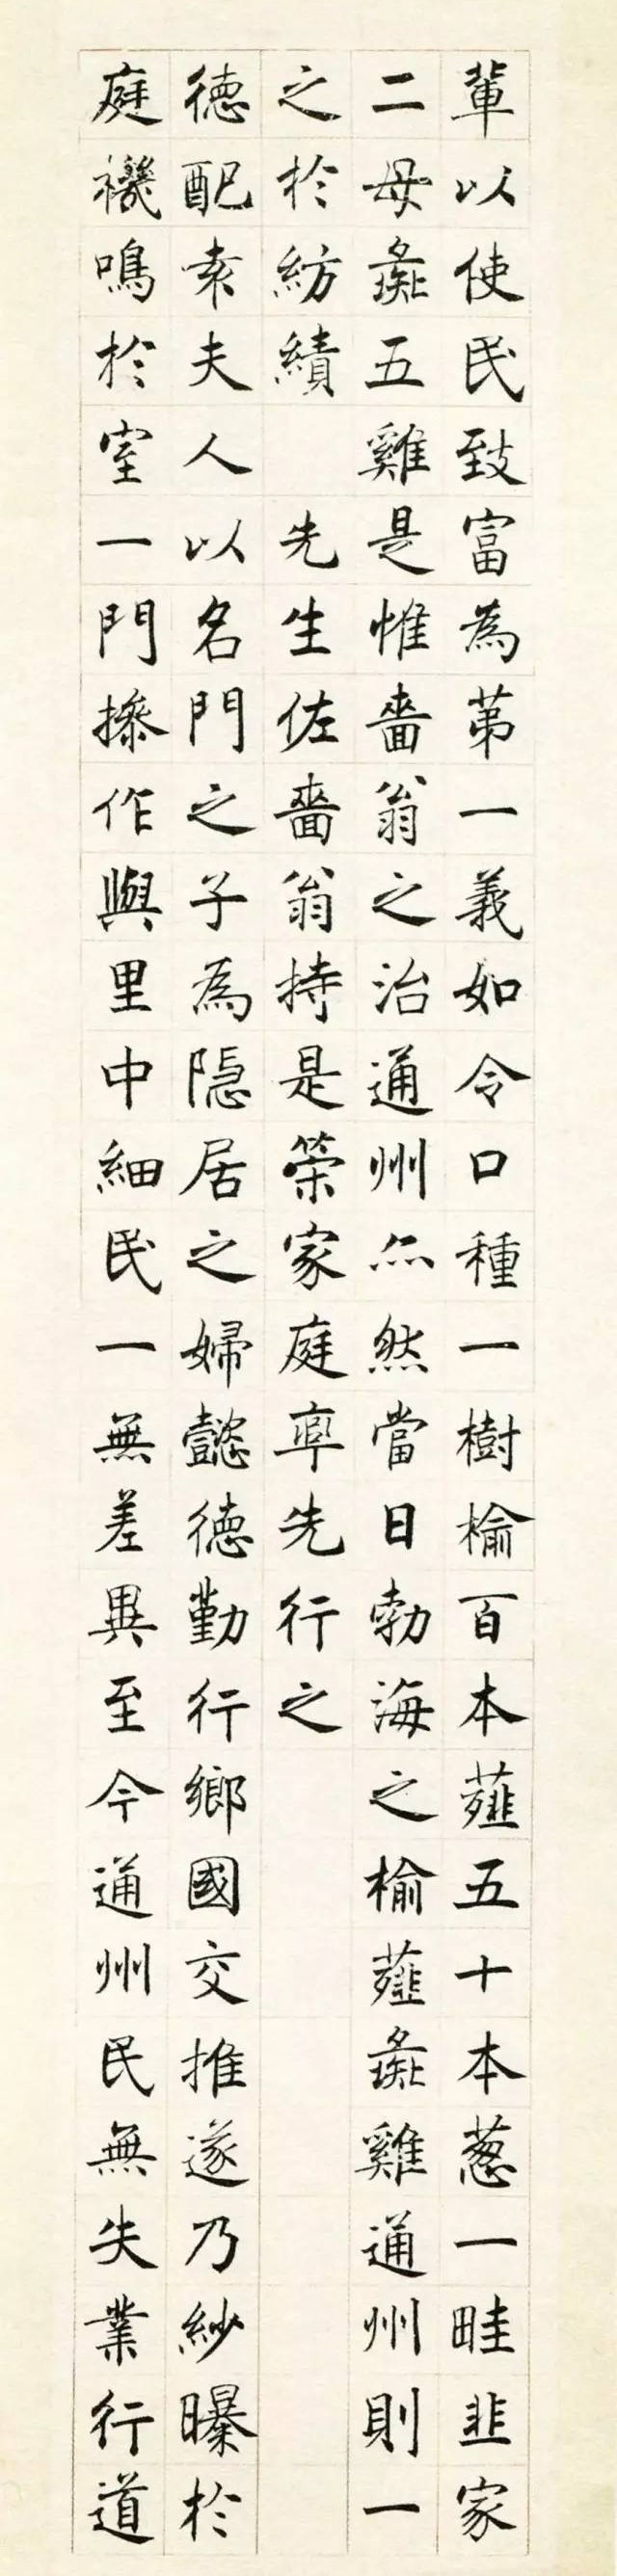 輩以使民致富為苐一義如令口種一樹榆百本薤五十本蔥一畦韭家
二母彘五雞是惟嗇翁之治通州亦然當日勃海之榆薤彘雞通州則一
之於紡績　先生佐嗇翁持是榮家庭率先行之
德配夫人以名門之子為隱居之婦懿德勤行鄉國交推遂乃紗曝於
庭機鳴於室一門操作與里中細民一無差異至今通州民無失業行道